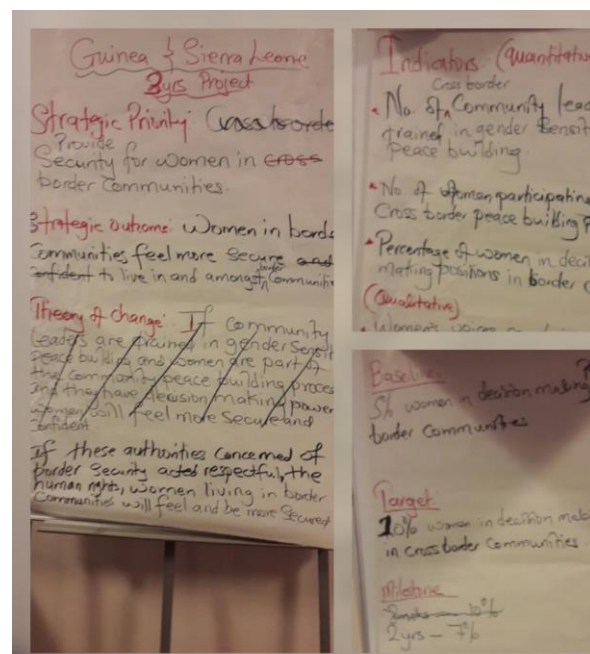 Guinea & Sierra Leone
2yrs Project
Strategic Priority: Cross borde
Provide
Security for women in cross
border communities.
Strategic outcome: Women in borde
Communities feel more Secure and
confident to live in and amongst border Communitie
Theory of change: If Community
leaders are trained in gender Sensit
peace building and women are part of
the community peace building proces
and they have decision making power
women will feel more Secure and
confident
If these authorities concerned of
border Security acted respectful, the
human rights, women living in border
Communities will feel and be more Secured
Indicators (quantitativ
Cross border
• No. of Community lead
trained in gender Sensit
peace building.
• No of women participating
Cross border peace building p
• Percentage of women in decis
making positions in border c
(Qualitative)
• Women's voices
Baseline: ?
5% women in decision making
border communities
Target:
10% women in decision mak
in cross border Communities.
Milestone
10%
2yrs – 7%